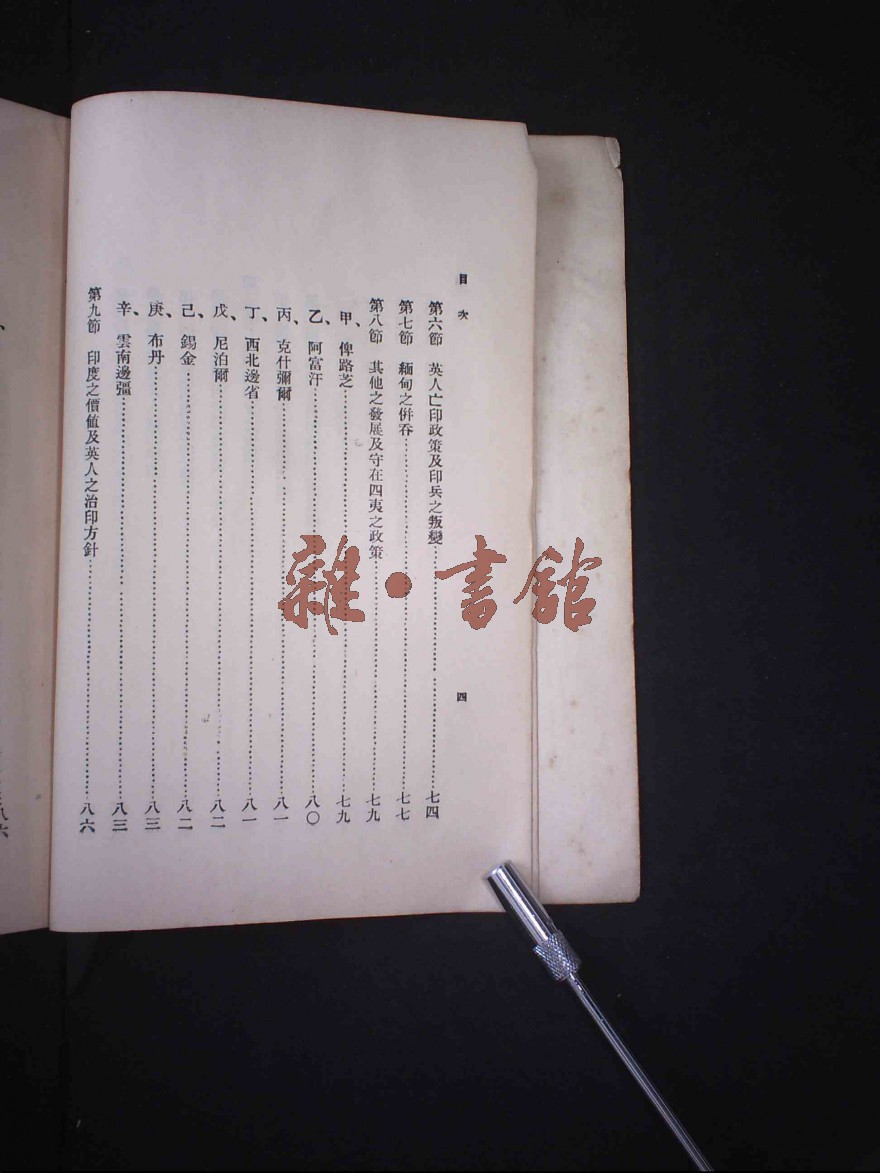 目次
四
第六節 英人亡印政策及印兵之叛變…………七四
第七節 緬甸之併吞…………七七
第八節 其他之發展及守在四夷之政策…………七九
甲、俾路芝…………七九
乙、阿富汗…………八〇
丙、克什彌爾…………八一
丁、西北邊省…………八一
戊、尼泊爾…………八二
己、錫金…………八二
庚、布丹…………八三
辛、雲南邊疆…………八三
第九節 印度之價値及英人之治印方針…………八六
雜·書館